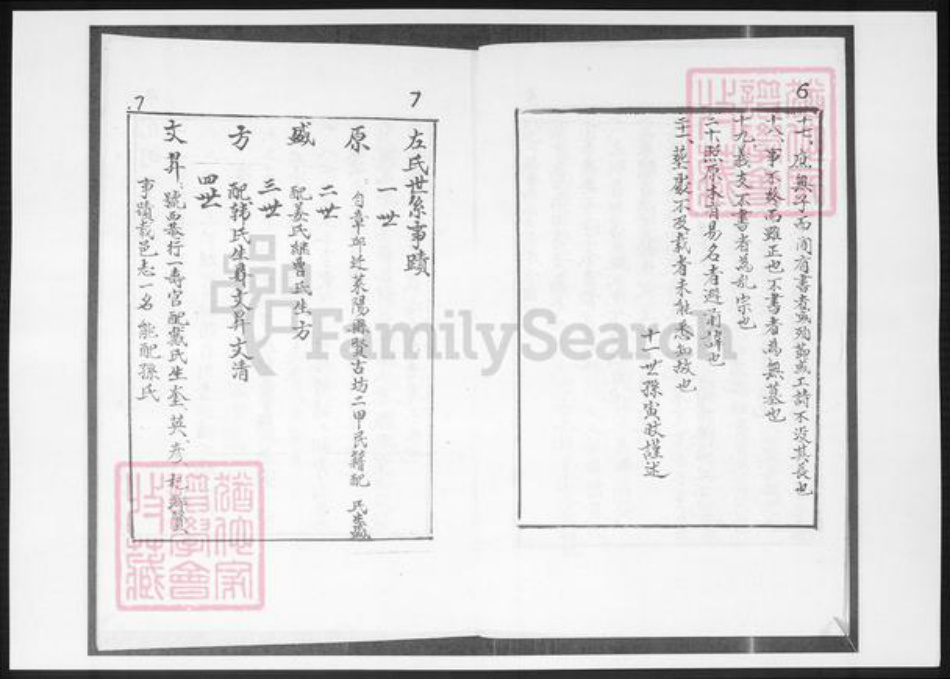 6
十七、庶無子而間有書者或殉節或工詩不没其長也
十八、事不終而雖正也不書者為無墓也
十九、義支不書者為亂宗也
二十、照原本有易名者避前諱也
二十一、葬厰不及載者未能悉知故也
十一世孫寅敀謹述
7
左氏世系事蹟
一世
原 自章邱遷萊陽縣賢古坊二甲民籍配 氏生盛
二世
盛 配姜氏繼曹氏生方
三世
方 配韩氏生昇文昇文清
四世
文昇 號西菴行一壽官配戴氏生奎、英、彥、
事蹟載邑志一名能配孫氏
7
FamilySearch